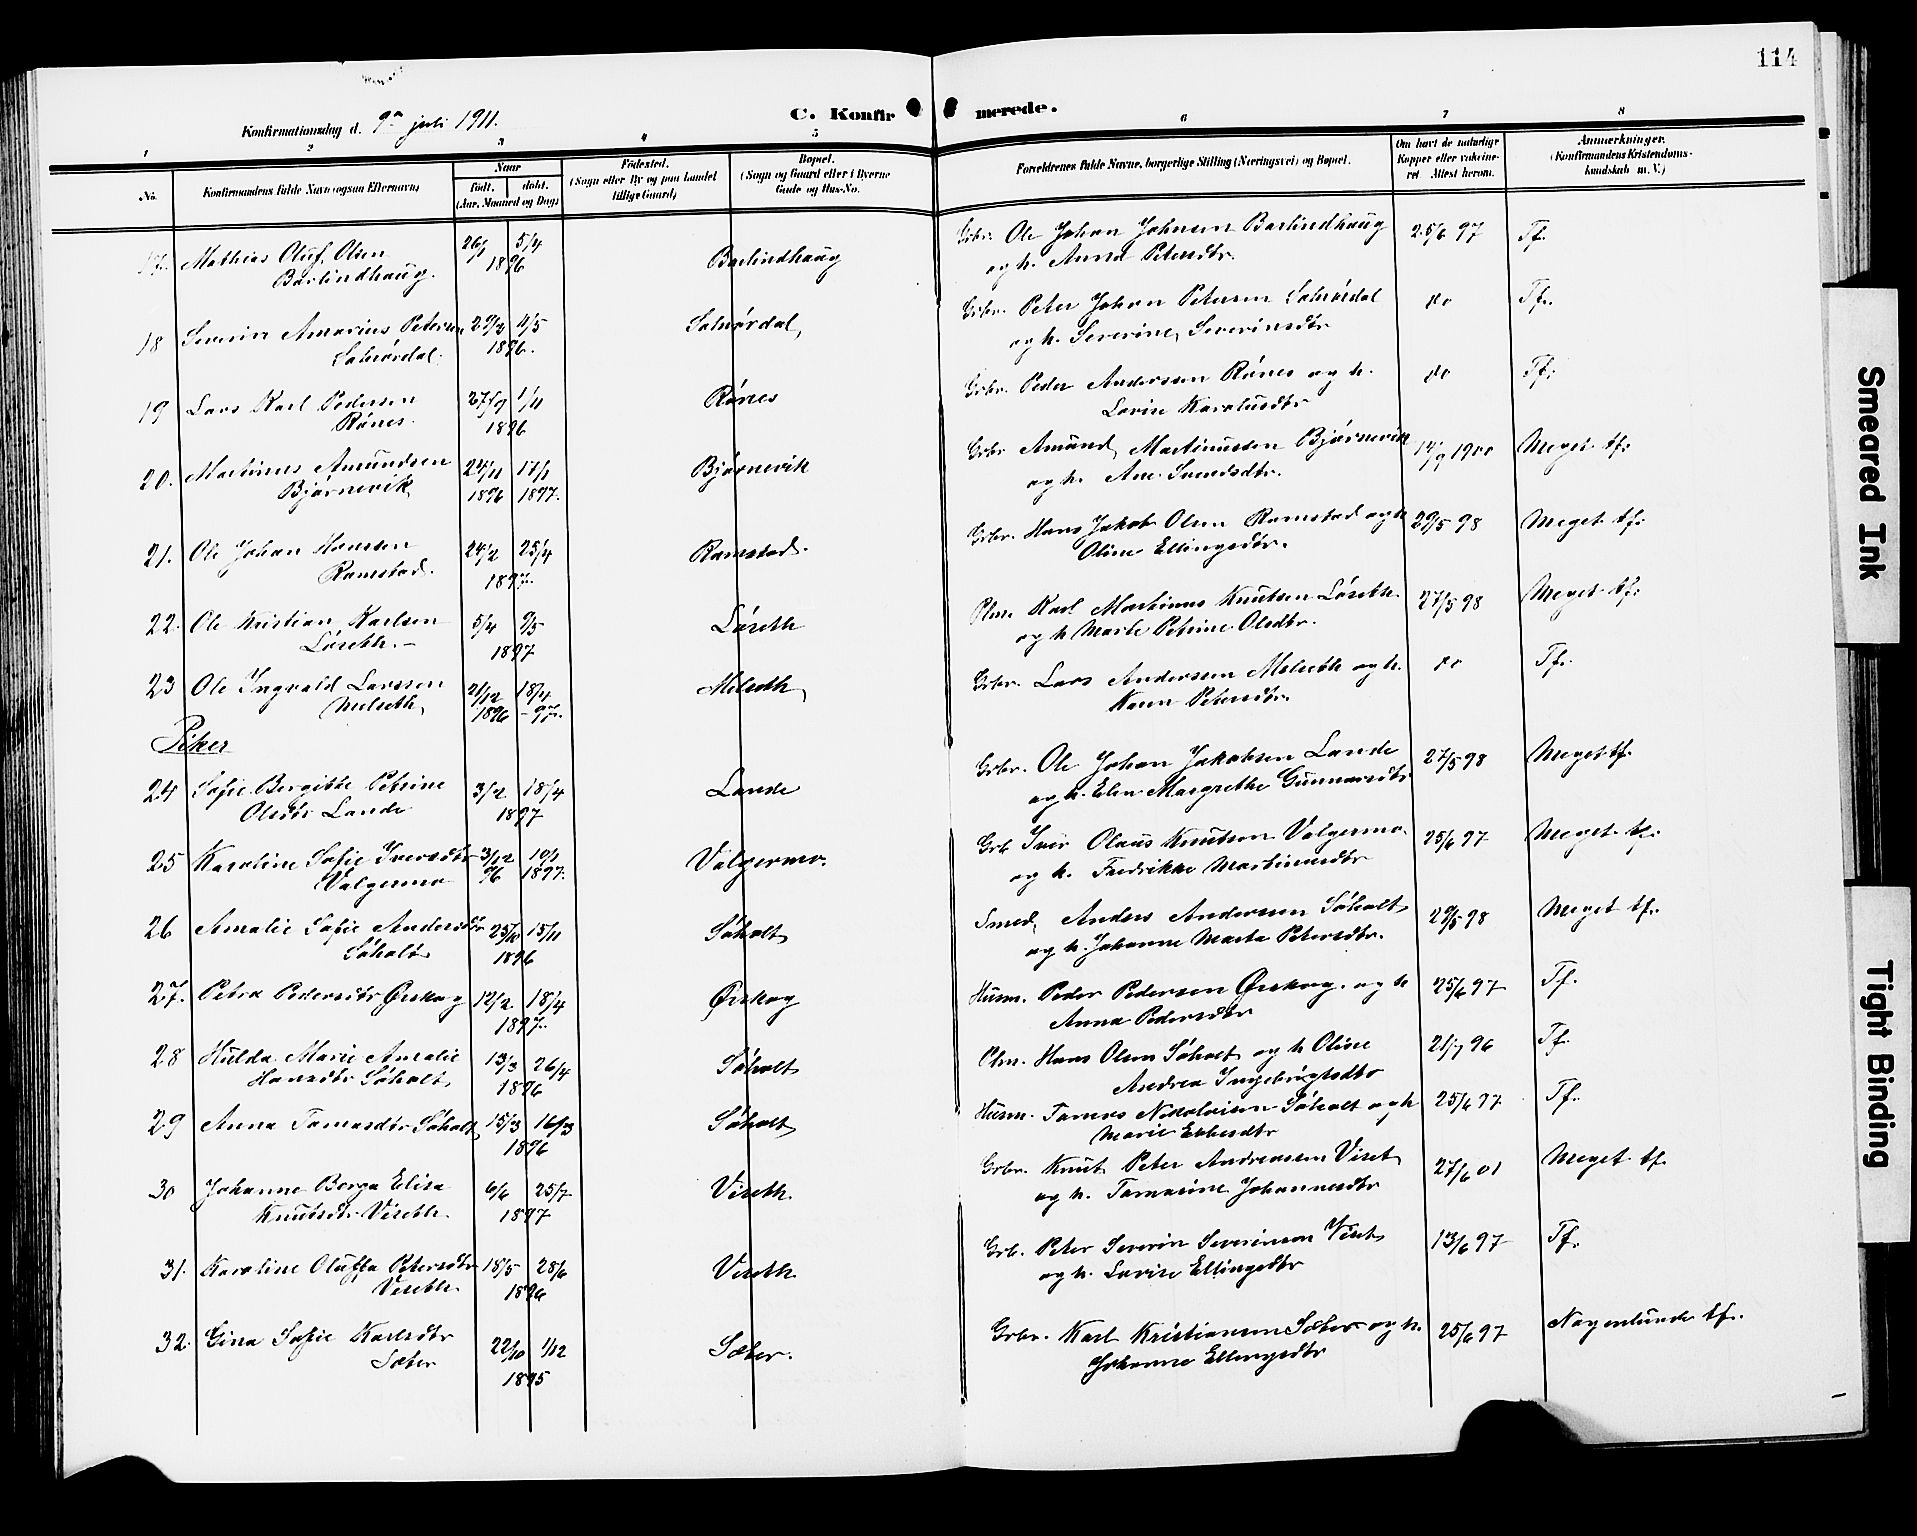 114
Konfirmationsdag d. 9de juli 1911.
C. Konfirmerede.
1 2 3 4 5 6 7 8
No. Konfirmandens fulde Navn (ogsaa Efternavn) Naar Født. døbt. (Aar, Maaned og Dag) Fødested. (Sogn eller By og paa Landet tillige Gaard) Bopæl. (Sogn og Gaard eller i Byerne Gade og Hus-No. Forældrenes fulde Navne, borgerlige Stilling (Næringsvei) og Bopæl. Om havt de naturlige Kopper eller vaccineret. Attest herom. Anmærkninger. (Konfirmandens Kristendomskundskab m. V.)
17. Mathias Oluf Olsen 26/1 5/4 Barlindhaug Grbr. Ole Johan Johnsen Barlindhaug 25/6 97 Tf.
Barlindhaug. 1896 og h. Anna Petersdtr.
18 Severin Amarius Petersen 29/2 4/5 Solnørdal Grbr. Peter Johan Petersen Solnørdal do Tf.
Solnørdal. 1896. og h. Severine Severinsdtr
19 Lars Karl Pedersen 27/9 1/11 Rønes Grbr. Peder Anderssen Rønes og h. do Tf.
Rønes. 1896 Lovise Karolusdtr
20. Martinus Amundsen 24/11 17/1 Bjørnevik Grbr Amund Martinussen Bjørnevik 14/9 1900 Meget tf.
Bjørnevik 1896 1897. og h. Ane Svendsdtr.
21. Ole Johan Hansen 24/2 25/4 Ramstad. Grbr. Hans Jakob Olsen Ramstad og h 29/5 98 Meget tf.
Ramstad. 1897. Oline Ellingsdtr.
22. Ole Kristian Karlsen 5/4 9/5 Løseth Karl Martinus Knutsen Løseth 27/5 98 Meget tf.
Løseth. 1897 og h Marte Petrine Olsdtr.
23 Ole Ingvald Larssen 21/12 18/4 Melseth Grbr. Lars Anderssen Melseth og h. do Tf.
Melseth 1896 - 97. Karen Petersdtr.
Piker
24 Sofie Bergitte Petrine 3/2 18/4 Lande Grbr. Ole Johan Jakobsen Lande 27/5 98 Meget tf.
Olsdtr Lande 1897 og h. Elen Margrethe Gunnarsdtr
25 Karoline Sofie Iversdtr 3/12 10/1 Valgermo. Grb Iver Olaus Knutsen Valgermo. 25/6 97 Meget tf.
Valgermo 96 1897. og h. Fredrikke Martinusdtr
26 Amalie Sofie Andersdtr 25/10 15/11 Søholt Smed Anders Anderssen Søholt 29/5 98 Meget tf.
Søholt 1896 og h. Johanne Marta Petersdtr.
27. Petra Pedersdtr Ørskog 12/2 18/4 Ørskog Husm. Peder Pedersen Ørskog. og h 25/6 97 Tf.
1897. Anna Pedersdtr
28 Hulda Marie Amalie 13/3 26/4 Søholt Hans Olsen Søholt og h Oline 21/7 96 Tf.
Hansdtr Søholt 1896 Andrea Ingebrigtsdtr
29 Anna Tomasdtr Søholt 15/3 16/3 Søholt Husm. Tomas Nikolaisen Søholt og h 25/6 97 Tf.
1896 Marie
30 Johanne Borga Elisa 6/6 25/7 Viseth. Grbr. Knut Peter Andreassen Viset 27/6 01 Meget tf
Knutsdtr Viseth. 1897 og h. Tomasine Johannesdtr
31. Karoline Oluffa Petersdtr 18/5 28/6 Viseth Grb. Peter Severin Severinsen Viset 13/6 97 Tf.
Viseth. 1896 og h. Lovise Ellingsdtr
32. Gina Sofie Karlsdtr 22/10 1/12 Sæter. Grbr. Karl Kristiansen Sæter og h. 25/6 97 Nogenlunde tf.
Sæter 1895 Johanne Ellingsdtr
Smeared Ink
Tight Binding